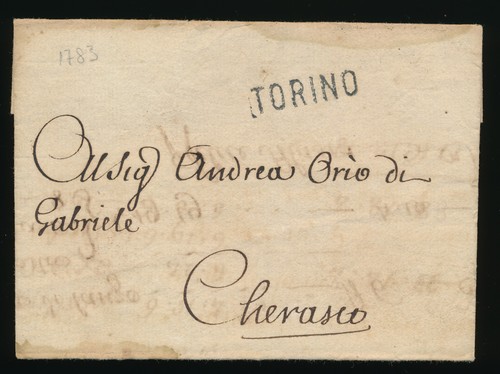 1783
TORINO
Al Sig Andrea Orio di
Gabriele
Cherasco